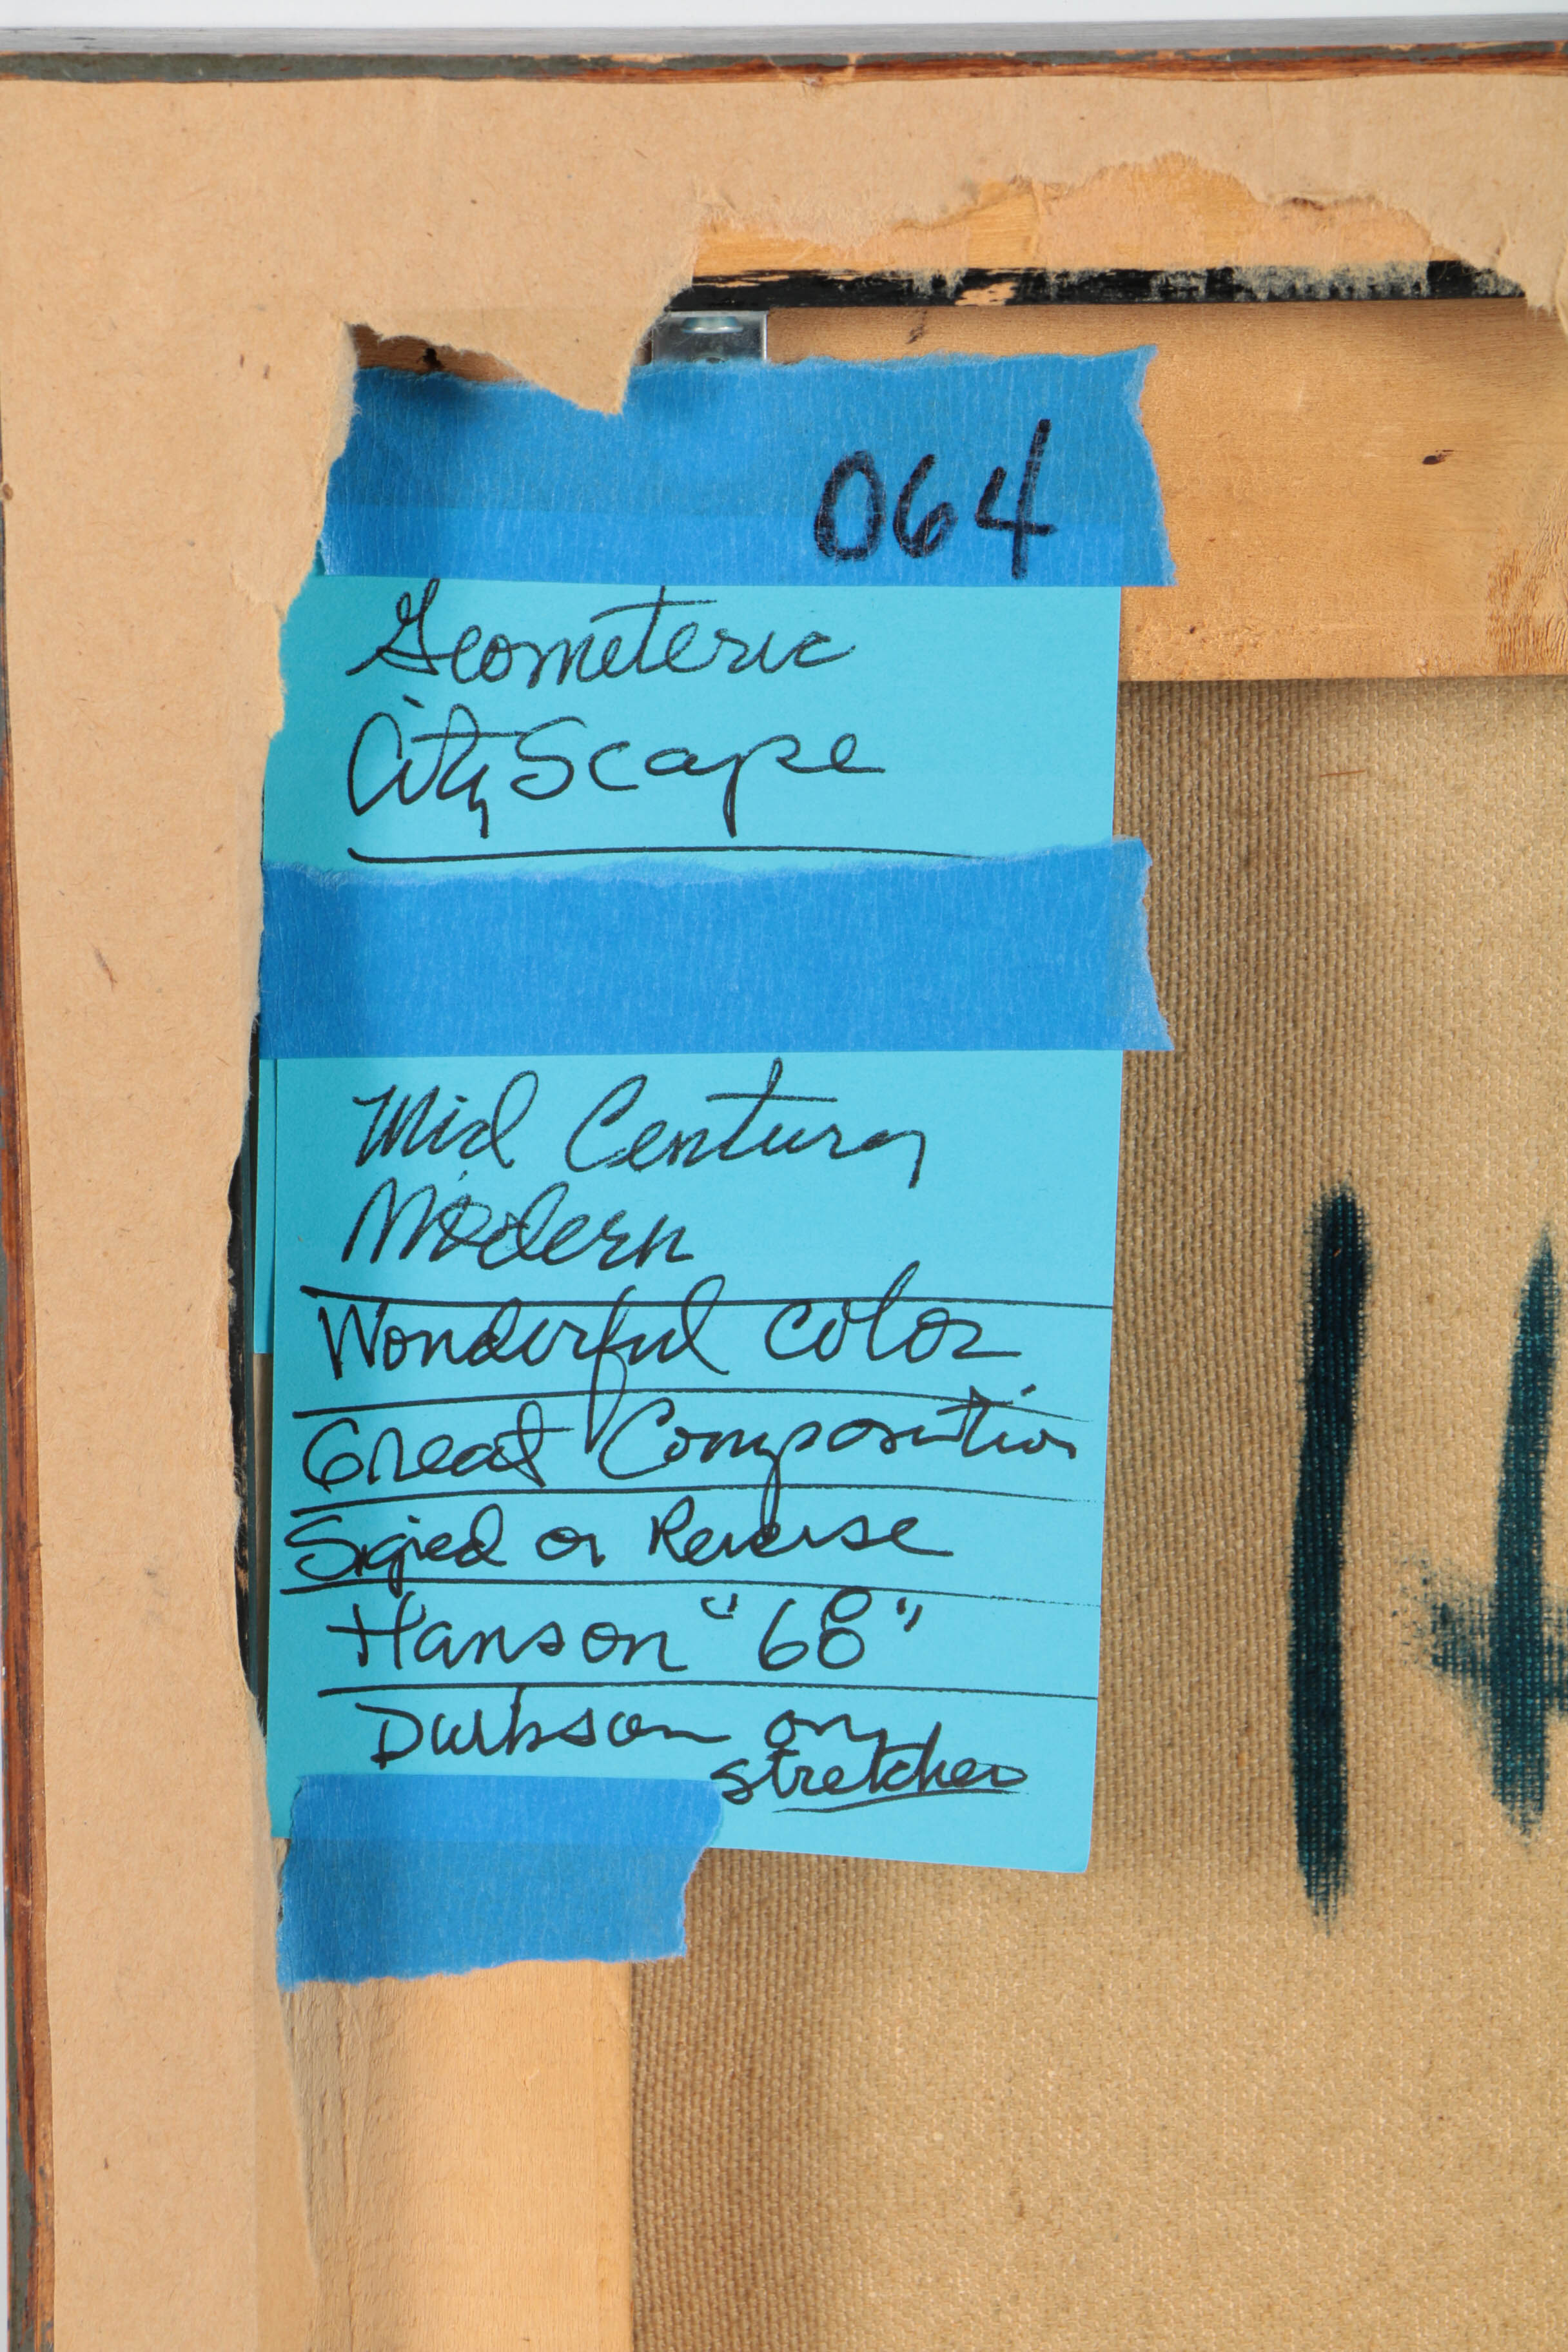 064
Geometeric
City Scape
Mid Century
Modern
Wonderful color
Great Composition
Signed on Reverse
Hanson "68"
on
stretcher